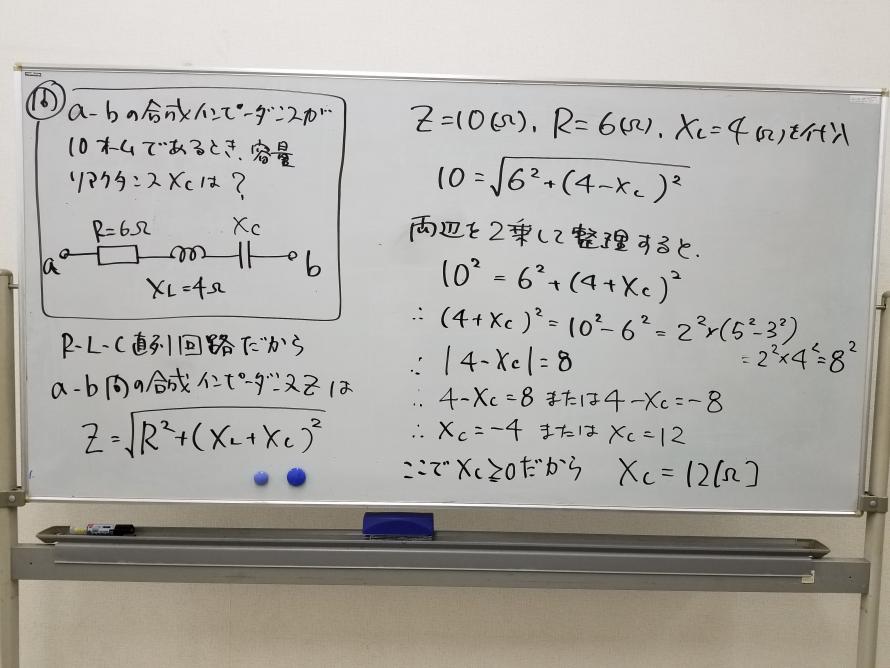 問 a-bの合成インピーダンスが
10オームであるとき、容量
リアクタンスXcは？
R=6Ω
Xc
a
b
XL=4Ω
R-L-C直列回路だから
a-b間の合成インピーダンスZは
Z=√R²+(XL+Xc)²
Z=10(Ω), R=6(Ω), XL=4(Ω)を代入
10=√6²+(4-Xc)²
両辺を2乗して整理すると、
10²=6²+(4+Xc)²
∴(4+Xc)²=10²-6²=2²×(5²-3²)
=2²×4²=8²
∴|4-Xc|=8
∴4-Xc=8または4-Xc=-8
∴Xc=-4またはXc=12
ここでXc≧0だから Xc=12[Ω]